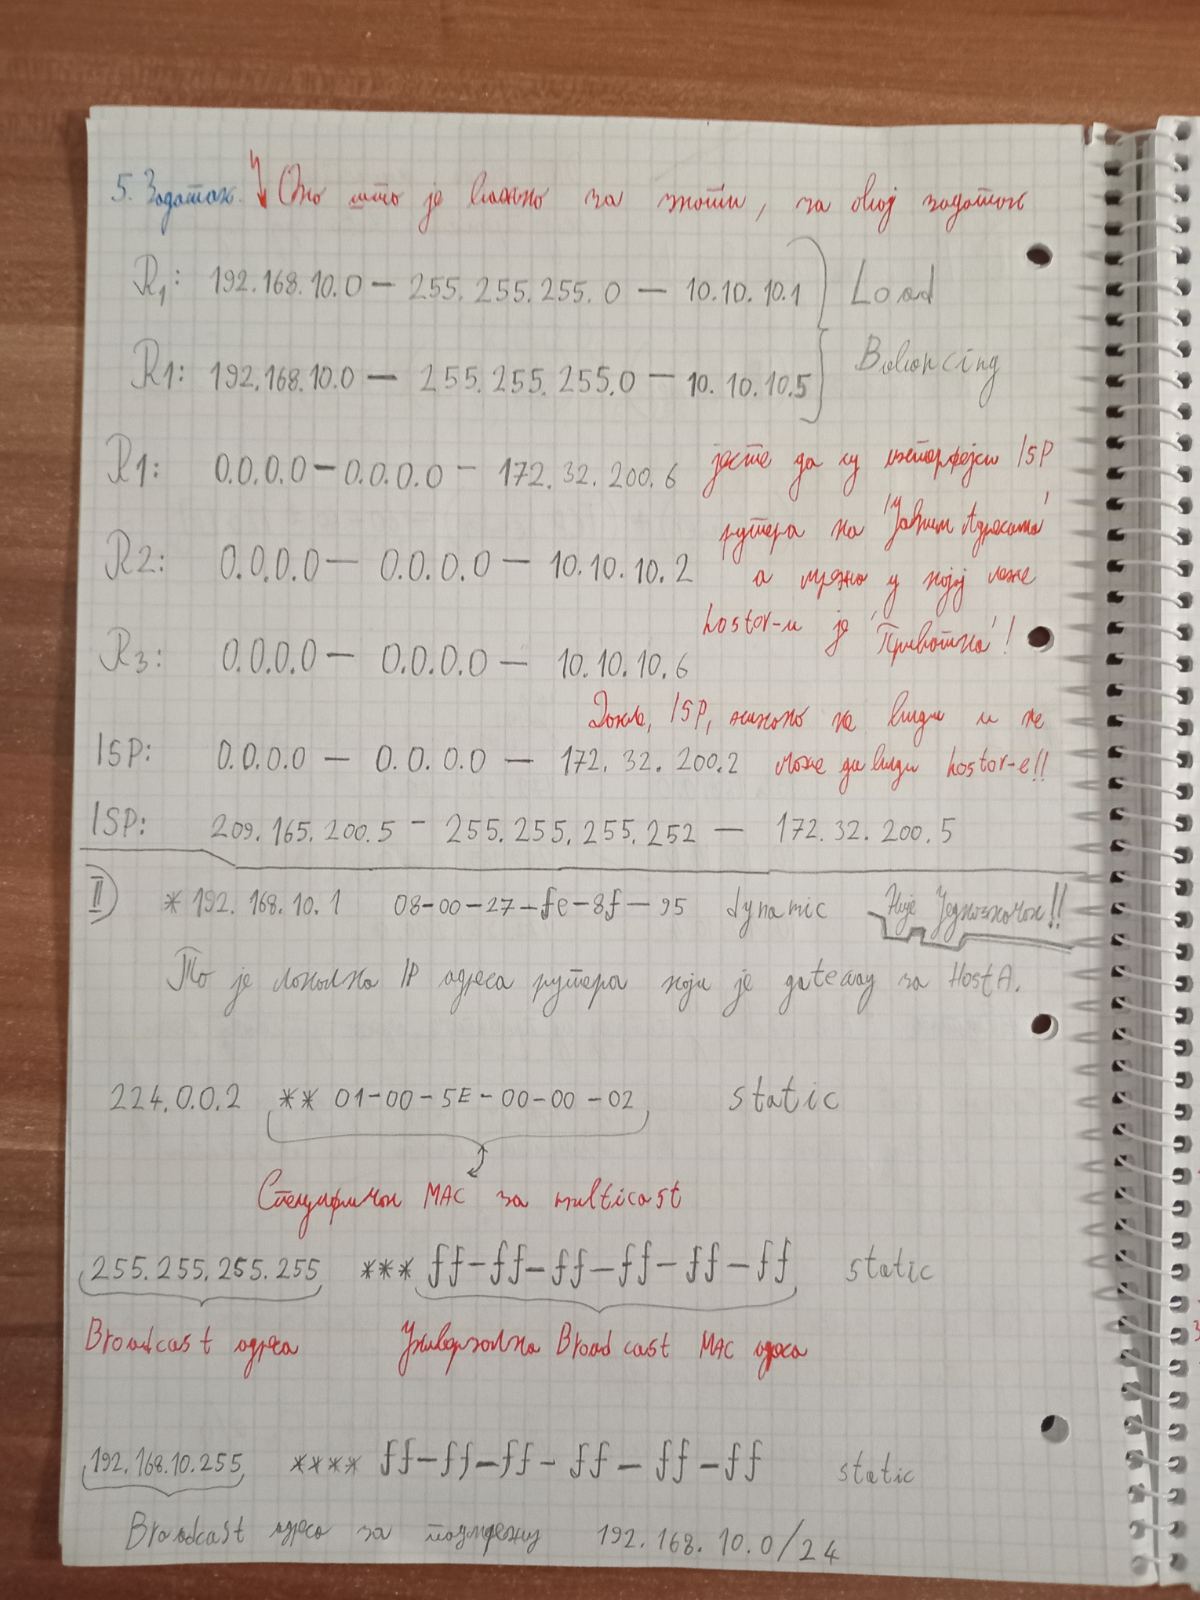 5. Задатак. Оно што је важно за знати, за овај задатак
R1: 192.168.10.0 — 255.255.255.0 — 10.10.10.1 Load
R1: 192.168.10.0 — 255.255.255.0 — 10.10.10.5 Balancing
R1: 0.0.0.0 — 0.0.0.0 — 172.32.200.6 јесте да су интерфејси ISP
рутера на 'Јавним Адресама'
R2: 0.0.0.0 — 0.0.0.0 — 10.10.10.2 а мрежа у којој леже
hostov-и је 'Приватна'!
R3: 0.0.0.0 — 0.0.0.0 — 10.10.10.6
Дакле, ISP, никако не види и не
ISP: 0.0.0.0 — 0.0.0.0 — 172.32.200.2 може да види hostov-e!!
ISP: 209.165.200.5 - 255.255.255.252 — 172.32.200.5
II) * 192.168.10.1 08-00-27-fe-8f-95 dynamic Није Једнозначан!!
То је локална IP адреса рутера који је gateway за HostA.
224.0.0.2 ** 01-00-5E-00-00-02 static
Специфичан MAC за multicast
255.255.255.255 *** ff-ff-ff-ff-ff-ff static
Broadcast адреса Универзална Broadcast MAC адреса
192.168.10.255 **** ff-ff-ff-ff-ff-ff static
Broadcast адреса за подмрежу 192.168.10.0/24